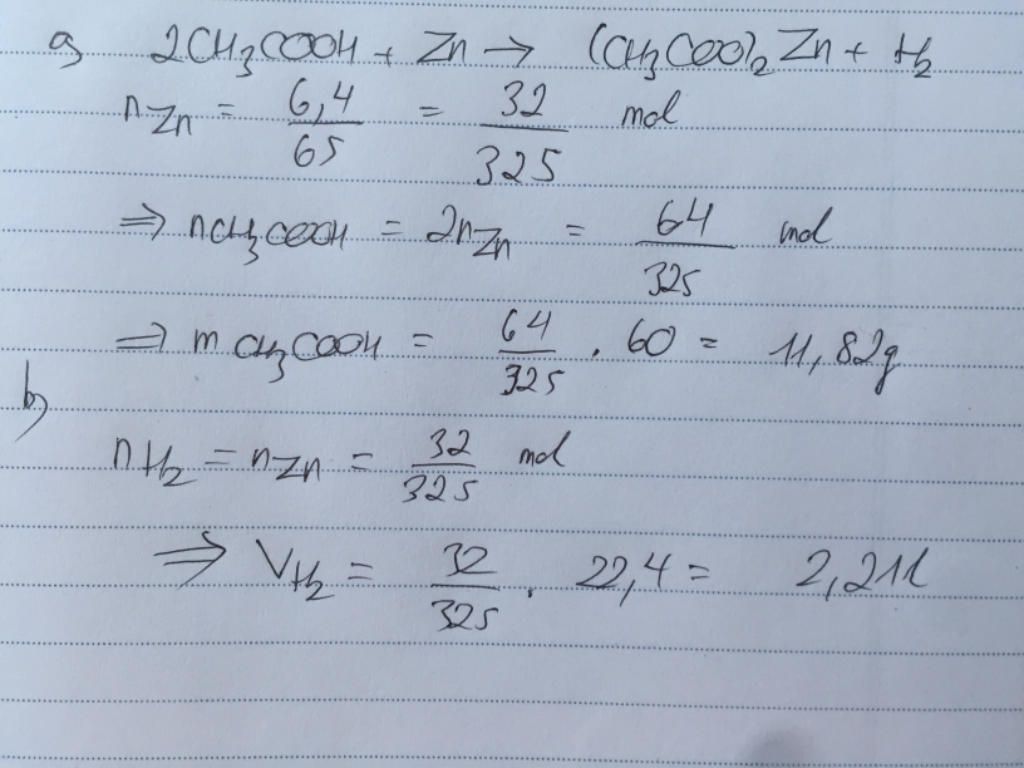 a) 2CH3COOH + Zn → (CH3COO)2Zn + H2
nZn = 6,4/65 = 32/325 mol
⇒ nCH3COOH = 2nZn = 64/325 mol
⇒ mCH3COOH = 64/325 . 60 = 11,82g
b)
nH2 = nZn = 32/325 mol
⇒ VH2 = 32/325 . 22,4 = 2,21l